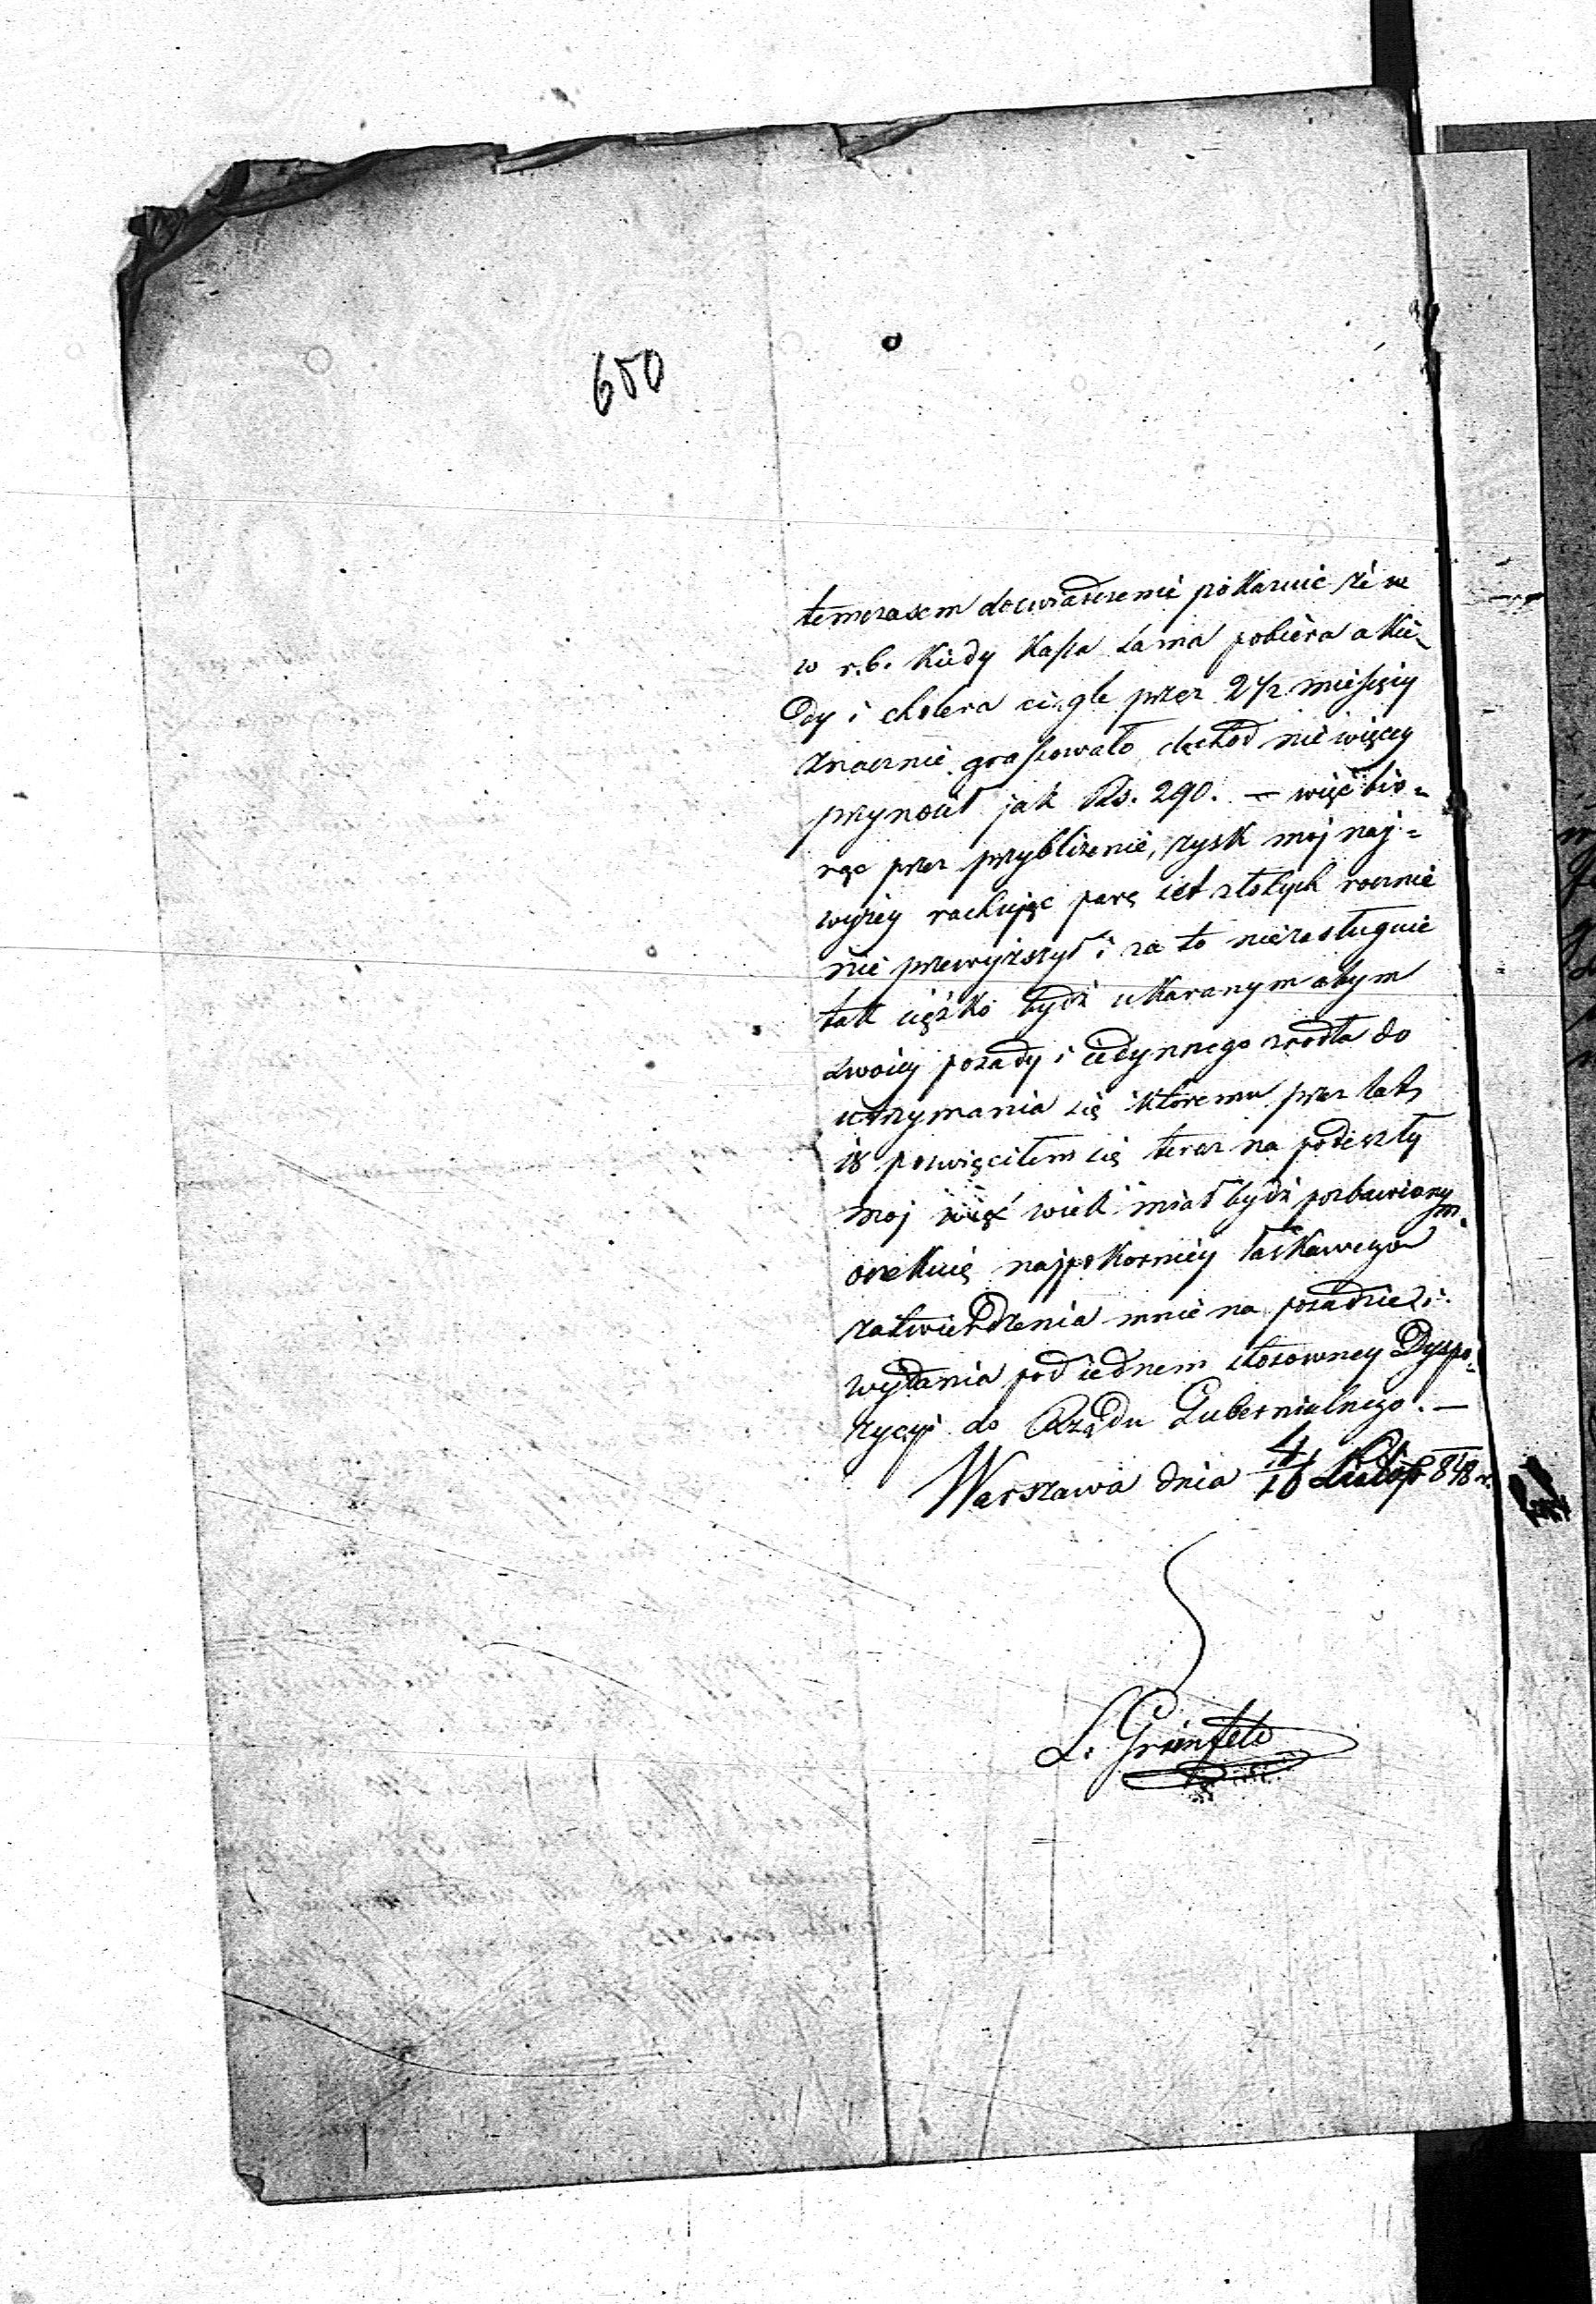 650
temczasem doswiadczenie pokazuie że we
w r.b. kiedy Kassa sama pobiera a kie-
dy i cholera ciągle przez 2 1/2 miesięcy
znacznie grassowała dochód nie więcey
przynosił jak Rs. 290. — więc bio=
rąc przez przybliżenie, zysk moj naj=
wyżey rachując parę set złotych rocznie
nie przewyższył i za to niezasługuie
tak ciężko bydź ukaranym abym
swoiey posady i iedynnego zrodła do
utrzymania się ktoremu przez lat
18 poswięciłem się teraz na podeszły
moj wiek miał bydź pozbawionym.
oczekuię najpokorniey łaskawego
zatwierdzenia mnie na posadzie i
wydania pod iednem stosowney Dyspo-
zycyi do Rządu Gubernialnego. —
Warszawa dnia 4/16 Listop 848 r.
L. Grünfeld